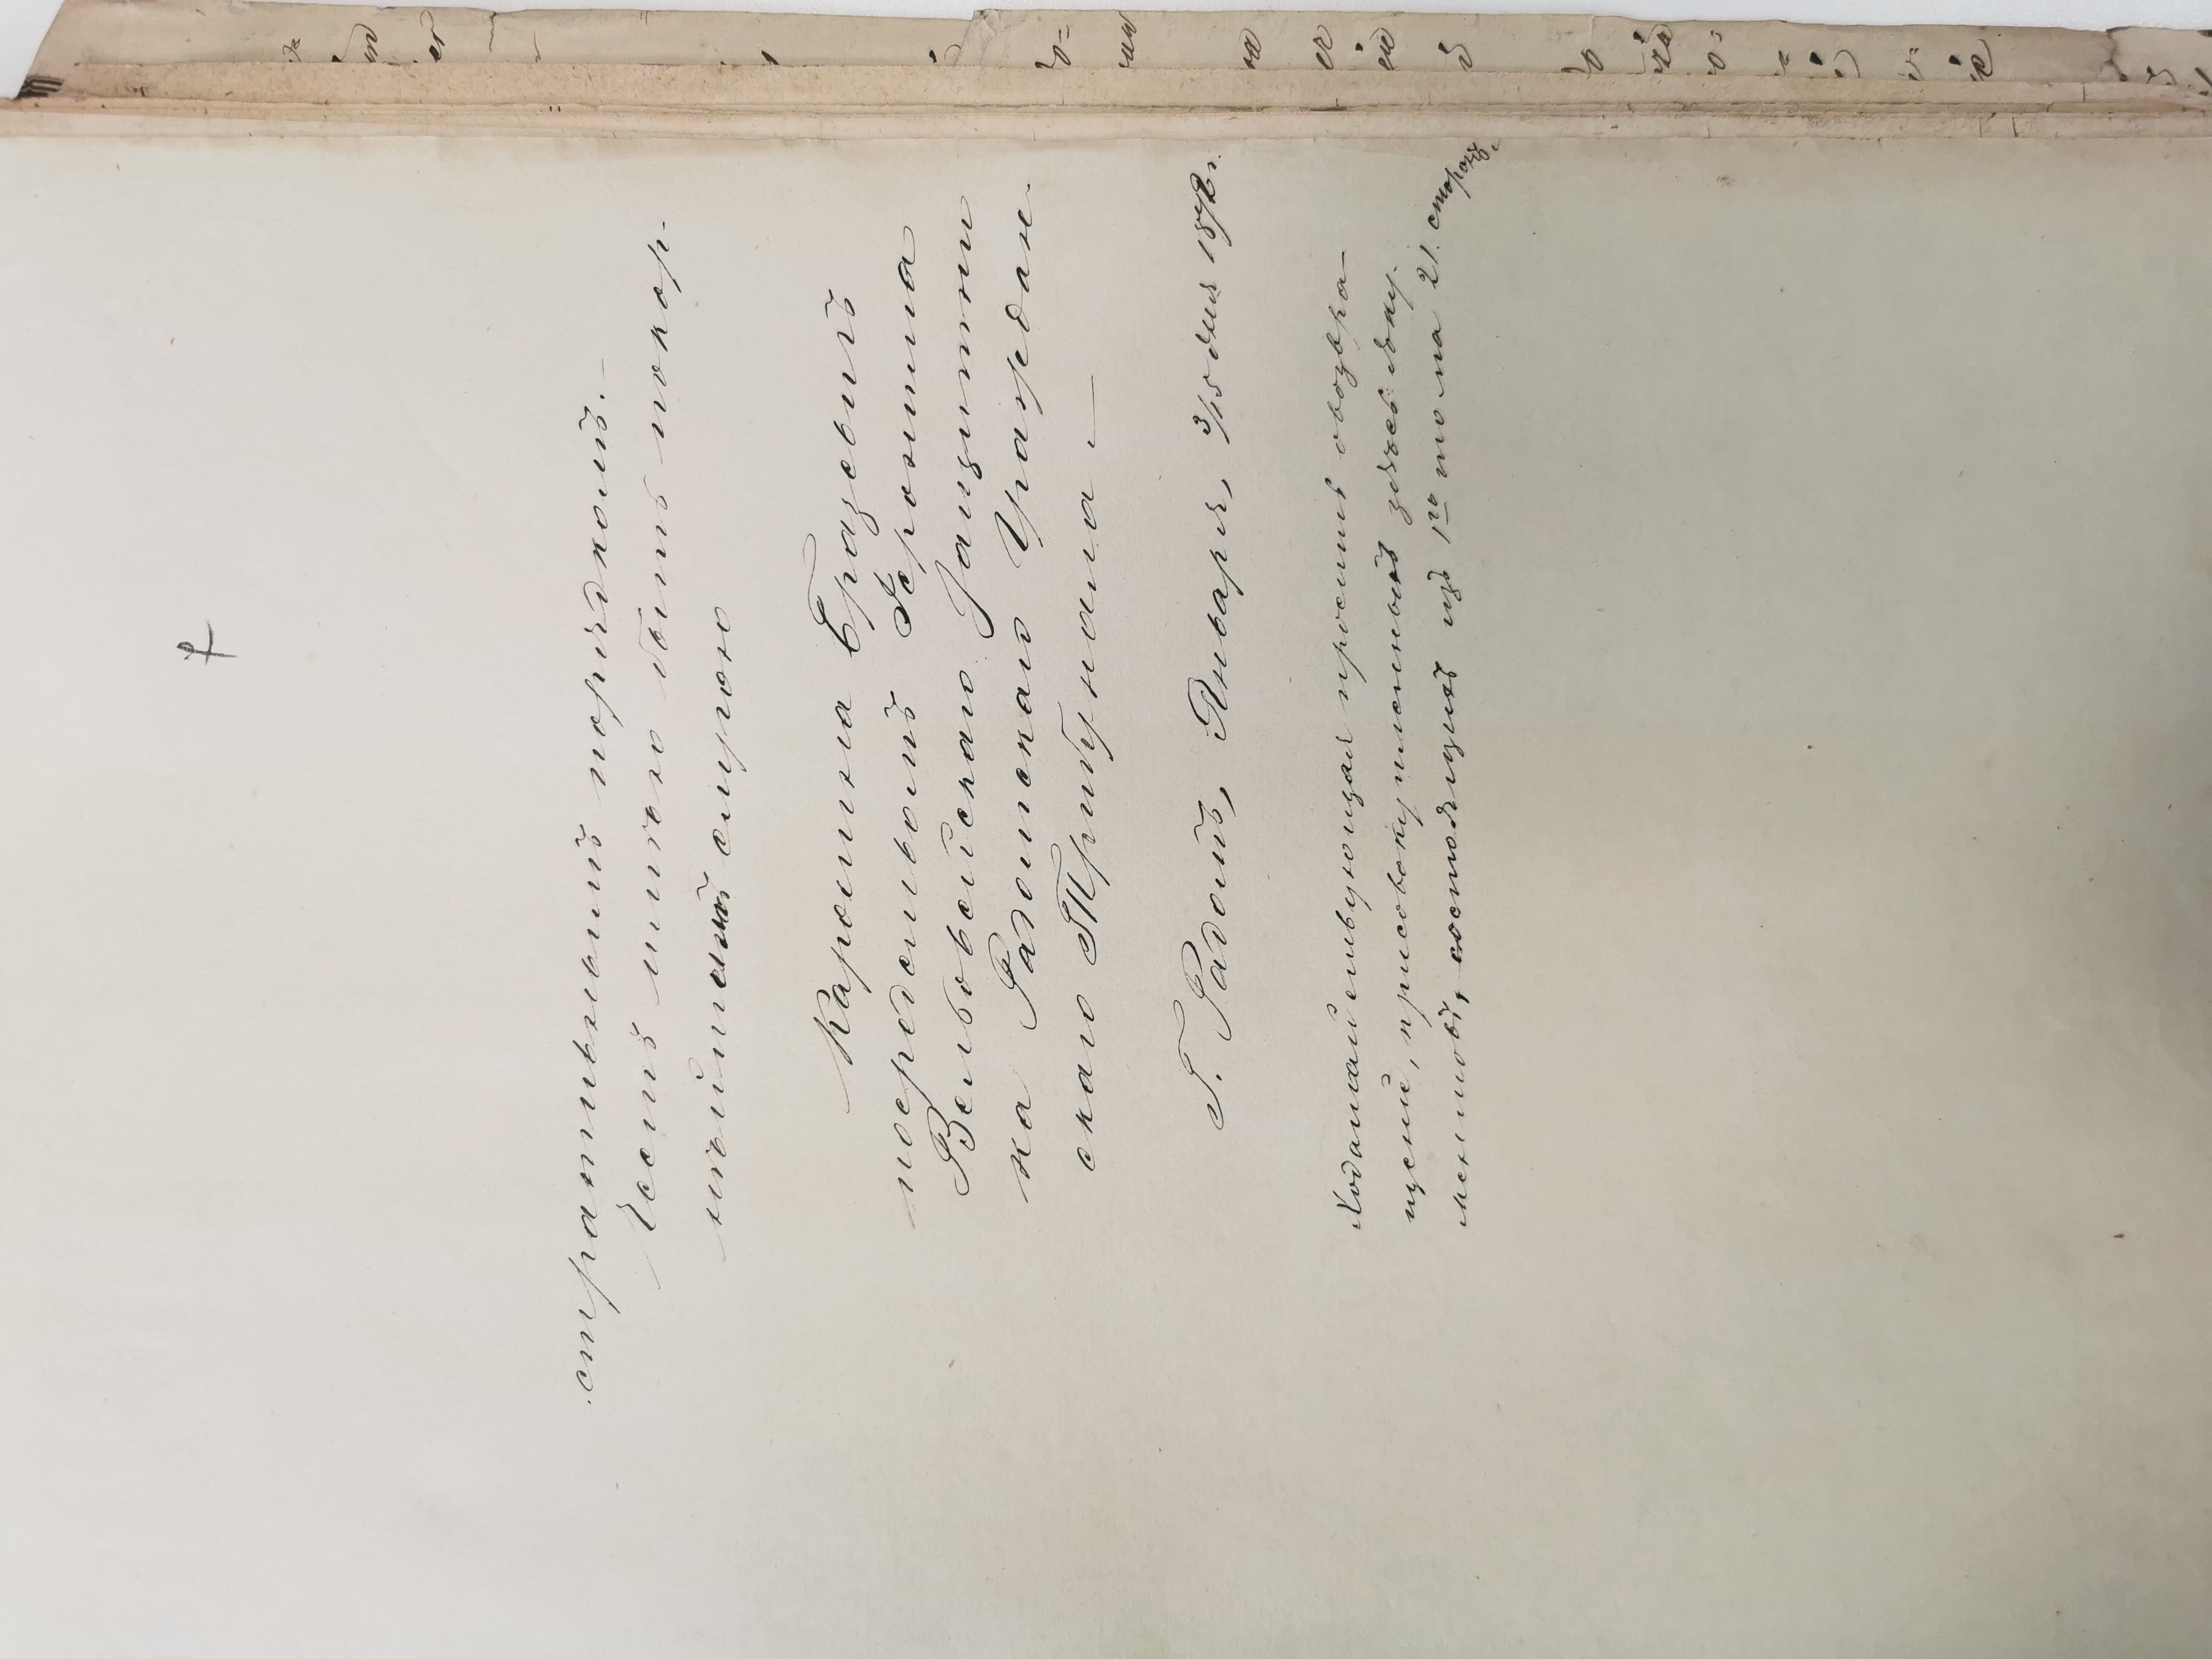 стративнымъ порядкомъ.—
Честь имѣю быть покор-
нѣйшею слугою
Каролина Бразевичъ
посредствомъ Іеронима
Вельовейскаго Защитни
ка Радомскаго Граждан-
скаго Трибунала —
Г. Радомъ, Января, 3/15 дня 1872 г.
Ходатайствующая проситъ о возвра-
щеніи, присовокупленныхъ здѣсь доку-
ментовъ, состоящихъ изъ 1го тома на 21. сторонѣ.